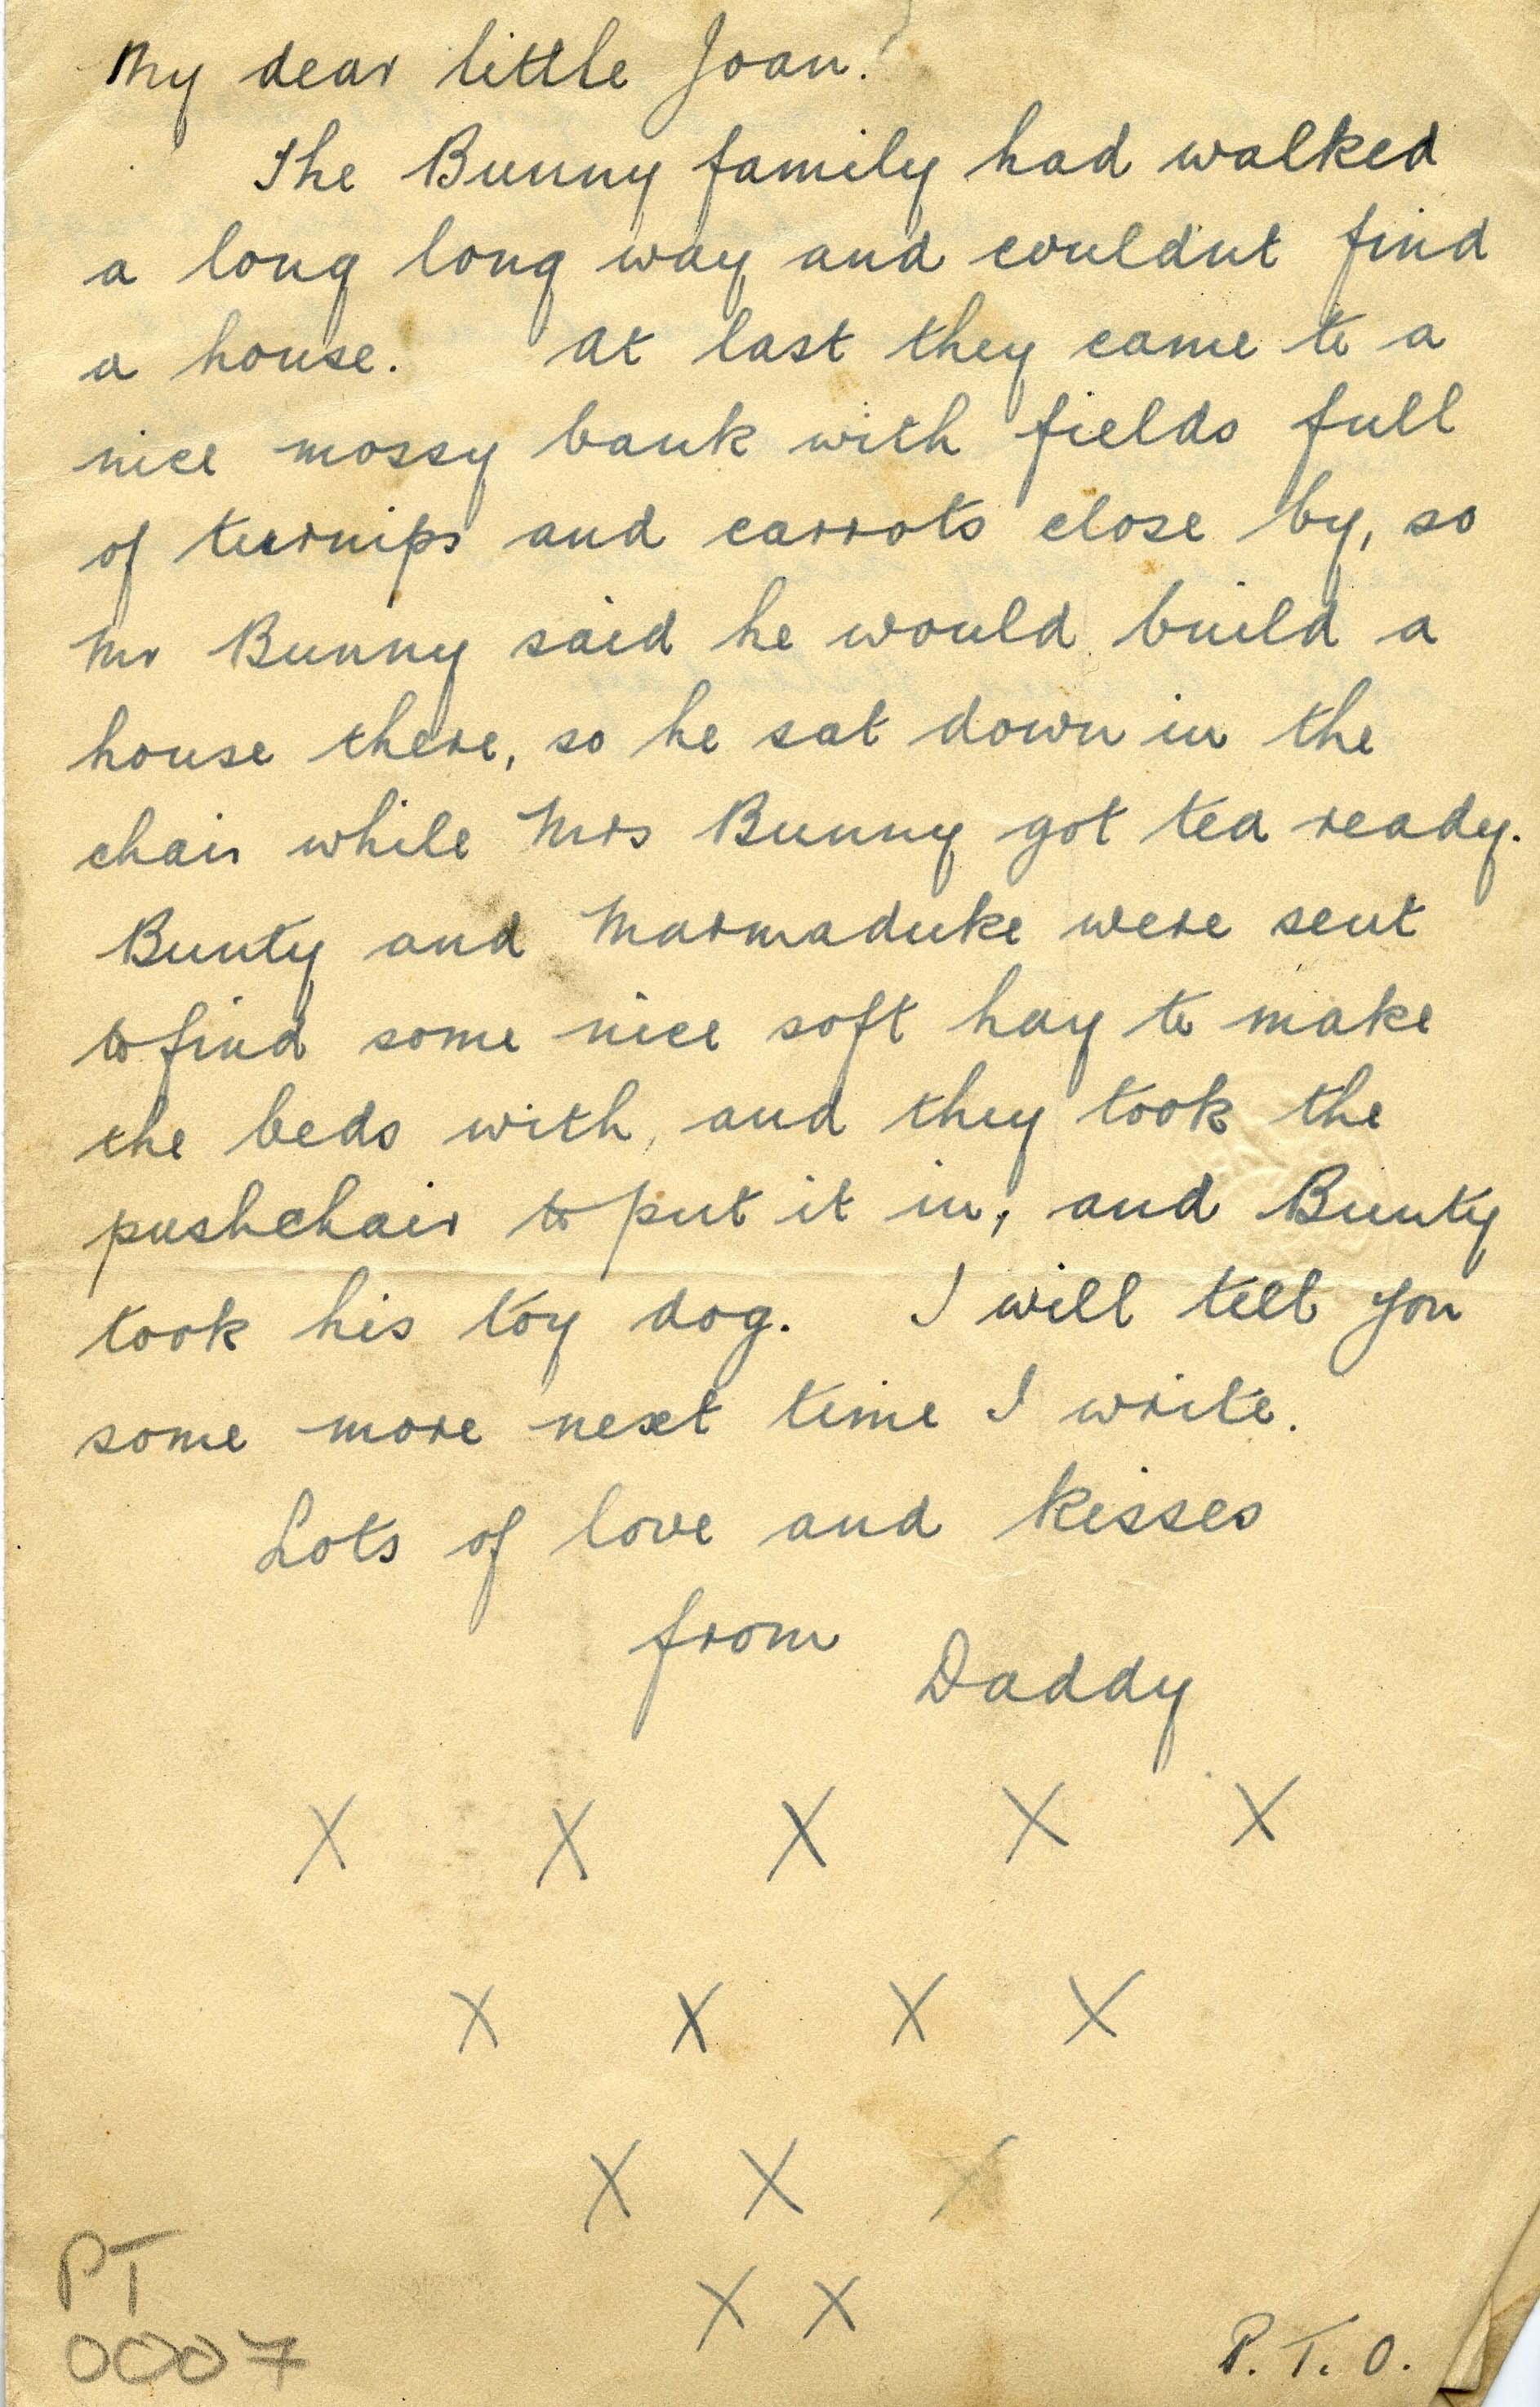 My dear little Joan!
The Bunny family had walked
a long long way and couldnt find
a house. At last they came to a
nice mossy bank with fields full
of turnips and carrots close by, so
Mr Bunny said he would build a
house there, so he sat down in the
chair while Mrs Bunny got tea ready.
Bunty and Marmaduke were sent
to find some nice soft hay to make
the beds with, and they took the
pushchair to put it in, and Bunty
took his toy dog. I will tell you
some more next time I write.
Lots of love and kisses
from Daddy
X X X X X
X X X X
X X X
X X
PT
0007
P.T.O.